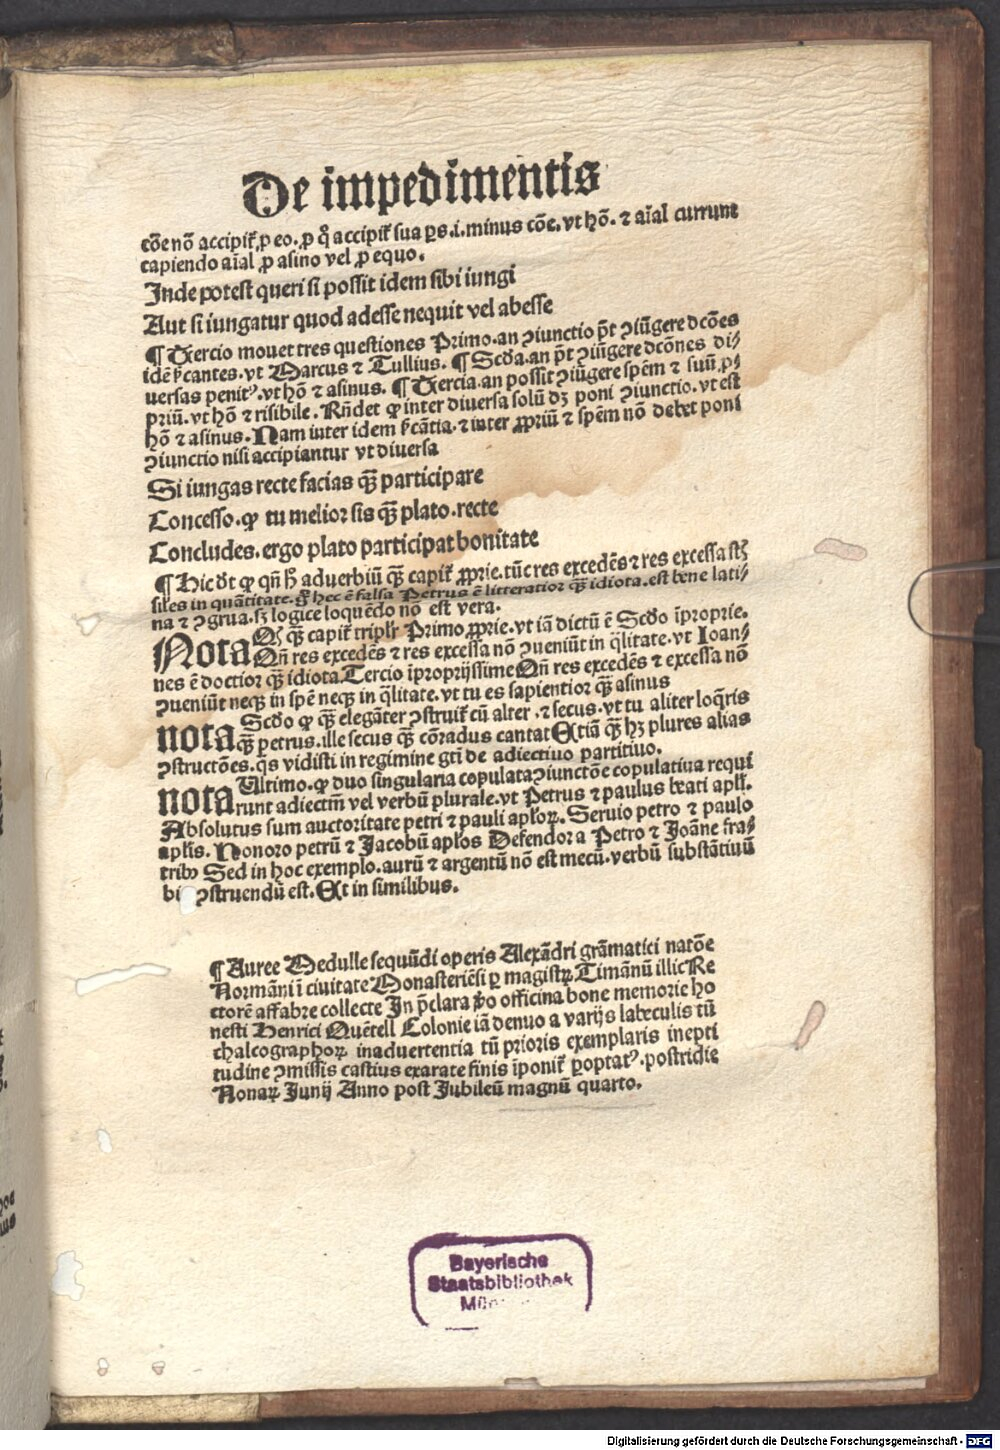 De impedimentis
cõe nõ accipiť, p eo. ꝓ q̊ accipiť sua ꝑs .i. minus cõe. vt hõ. ⁊ aĩal currunt
capiendo aĩal ꝓ asino vel ꝓ equo.
Inde potest queri si possit idem sibi iungi
Aut si iungatur quod adesse nequit vel abesse
¶ Tercio mouet tres questiones Primo. an ꝯiunctio p̃t ꝯiũgere dcões
idẽ sꝰcantes. vt Marcus ⁊ Tullius. ¶ Scďa. an p̃t ꝯiũgere dcõnes di⸗
uersas penitꝰ. vt hõ ⁊ asinus. ¶ Tercia. an possit ꝯiũgere spẽm ⁊ suũ ꝓ⸗
priũ. vt hõ ⁊ risibile. Rñdet ꝙ inter diuersa solũ dꝫ poni ꝯiunctio. vt est
hõ ⁊ asinus. Nam inter idem sꝰcãtia. ⁊ inter ꝓpriũ ⁊ spẽm nõ debet poni
ꝯiunctio nisi accipiantur vt diuersa
Si iungas recte facias qȝ̃ participare
Concesso. ꝙ tu melior sis qȝ̃ plato. recte
Concludes. ergo plato participat bonitate
¶ Hic dt ꝙ qñ hͦ aduerbiũ qȝ̃ capiť ꝓprie. tũc res excedẽs ⁊ res excessa st̃
siles in quãtitate. gͦ hec ẽ falsa Petrus ẽ litteratior qȝ̃ idiota. est bene lati⸗
na ⁊ ꝯgrua. sꝫ logice loquẽdo nõ est vera.
Nota Qͥ qȝ̃ capiť triplr̃ Primo ꝓprie. vt iã dictũ ẽ Scďo ĩproprie.
Qñ res excedẽs ⁊ res excessa nõ ꝯueniũt in q̃litate. vt Ioan⸗
nes ẽ doctior qȝ̃ idiota. Tercio ĩproprijssime Qñ res excedẽs ⁊ excessa nõ
ꝯueniũt neqꝫ in spẽ neqꝫ in q̃litate. vt tu es sapientior qȝ̃ asinus
nota Scďo ꝙ qȝ̃ elegãter ꝯstruiť cũ alter. ⁊ secus. vt tu aliter loq̃ris
qȝ̃ petrus. ille secus qȝ̃ cõradus cantat Etiã qȝ̃ hꝫ plures alias
ꝯstructões. qs vidisti in regimine gt̃i de adiectiuo partitiuo.
nota Ultimo. ꝙ duo singularia copulata ꝯiunctõe copulatiua requi
runt adiectm̃ vel verbũ plurale. vt Petrus ⁊ paulus beati apłi.
Absolutus sum auctoritate petri ⁊ pauli apłoꝝ. Seruio petro ⁊ paulo
apłis. Honoro petrũ ⁊ Jacobũ apłos Defendor a Petro ⁊ Joãne fra⸗
tribꝰ Sed in hoc exemplo. aurũ ⁊ argentũ nõ est mecũ. verbũ substãtiuũ
bi ꝯstruendũ est. Et in similibus.
¶ Auree Medulle sequũdi operis Alexãdri grãmatici natõe
Normãni ĩ ciuitate Monasteriẽsi ꝑ magistꝝ Timãnũ illic Re
ctorẽ affabre collecte In p̃clara ꝓbo officina bone memorie ho
nesti Henrici Quẽtell Colonie iã denuo a varijs labeculis tũ
chalcographoꝝ inaduertentia tũ prioris exemplaris inepti
tudine ꝯmissis castius exarate finis ĩponiť ꝑoptatꝰ. postridie
Nonaꝝ Junij Anno post Jubileũ magnũ quarto.
Bayerische
Staatsbibliothek
Digitalisierung gefördert durch die Deutsche Forschungsgemeinschaft - DFG